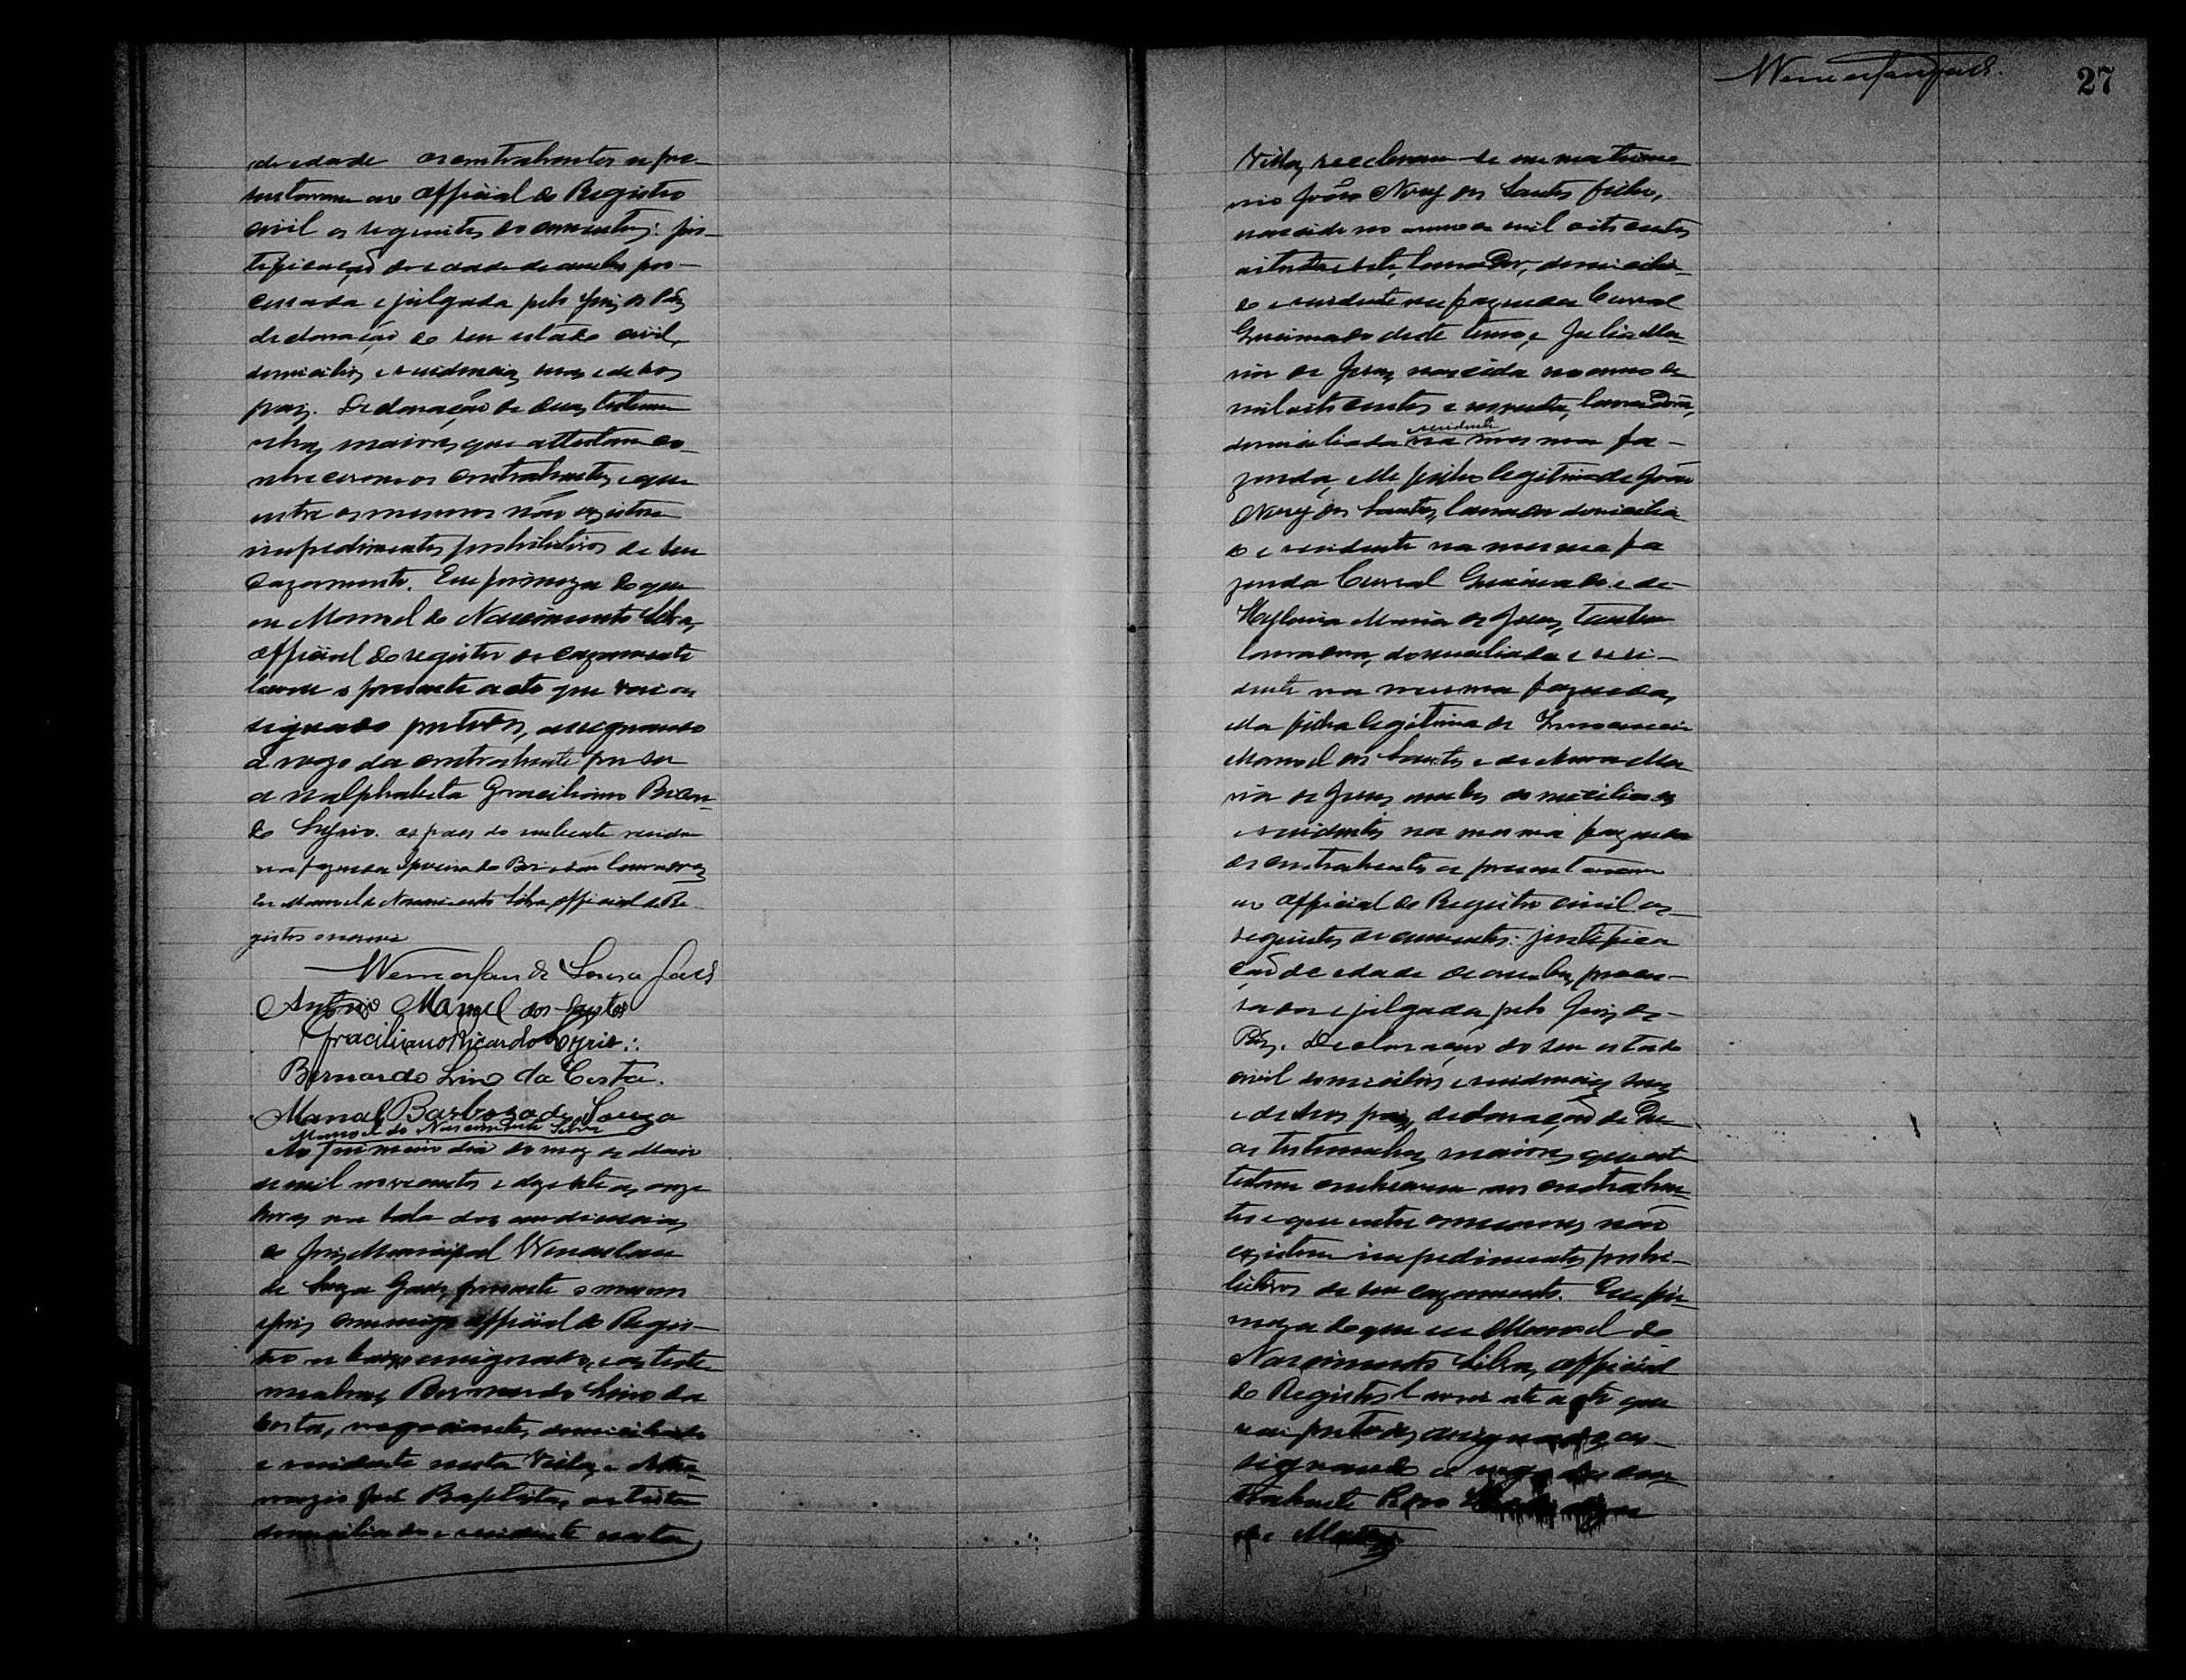 de edade os contrahentes apre-
sentaram ao official do Registro
civil os seguintes documentos: jus-
tificação de edade de ambos pro-
cessada e julgada pelo Juiz de Páz
declaração do seu estado civil,
domicilio, e residencia, seus e de seos
paiz. Declaração de duas testemu
nhas, maiores, que attestam co-
nhecerem os contrahentes, e que
entre os mesmos não existem
impedimentos prohibitivos de seu
cazamento. Em firmeza do que
eu Manoel do Nascimento Silva,
official do registro de cazamento
lavrei o presente acto que vai as
signado por todos, assignando
a rogo da contrahente por ser
analphabeta Graciliano Ricar-
do
os paes do nubente residem
na fazenda
Eu Manoel do Nascimento Silva official do Re
gistro escrevi
Wenceslau de Souza
Antonio Manoel dos Santos
Graciliano Ricardo
Bernardo Lino da Costa.
Manoel Barbosa de Souza
Manoel do Nascimento Silva
Ao primeiro dia do mez de Maio
de mil novecentos e dezesete as onze
horas na sala das audiencias
do Juiz Municipal Wenceslau
de Souza presente o mesmo
Juiz commigo official do Regis-
tro abaixo assignado, e as teste
munhas, Bernardo Lino da
Costa, negociante, domiciliado
e residente nesta Villa, e
José Baptista, artista
domiciliado e residente nesta
27
Villa, receberam-se em matrimo
nio João Nery dos Santos filho,
nascido no anno de mil oitocentos
oitenta e sete, lavrador, domicilia
do e residente na fazenda Curral
Queimado deste termo, e Julia Ma
ria de Jesus, nascida no anno de
mil oitocentos e noventa, lavradora,
residente
domiciliada na mesma fa-
zenda, elle filho legitimo de João
Nery dos Santos, lavrador domicilia
do e residente na mesma fa
zenda Curral Queimado e de
Maria de Jesus, tambem
lavradora, domiciliada e resi-
dente na mesma fazenda,
ella filha legitima de
Manoel dos Santos e de Anna Ma
ria de Jesus, ambos domiciliados
e residentes na mesma fazenda
os contrahentes apresentaram
ao official do Registro civil os
seguintes documentos: justifica
ção de edade de ambos, proces-
sada e julgada pelo Juiz de
Páz. Declaração do seu estado
civil domicilio, e residencia, seus
e de seos paiz, declaração de du
as testemunhas, maiores, que at
testam conhecerem aos contrahen
tes e que entre os mesmos não
existem impedimentos prohi-
bitivos de seu cazamento. Em fir
meza do que eu Manoel do
Nascimento Silva, official
do Registro lavrei este acto que
vai por todos, assignado as-
signando a rogo da con
trahente
de Mattos